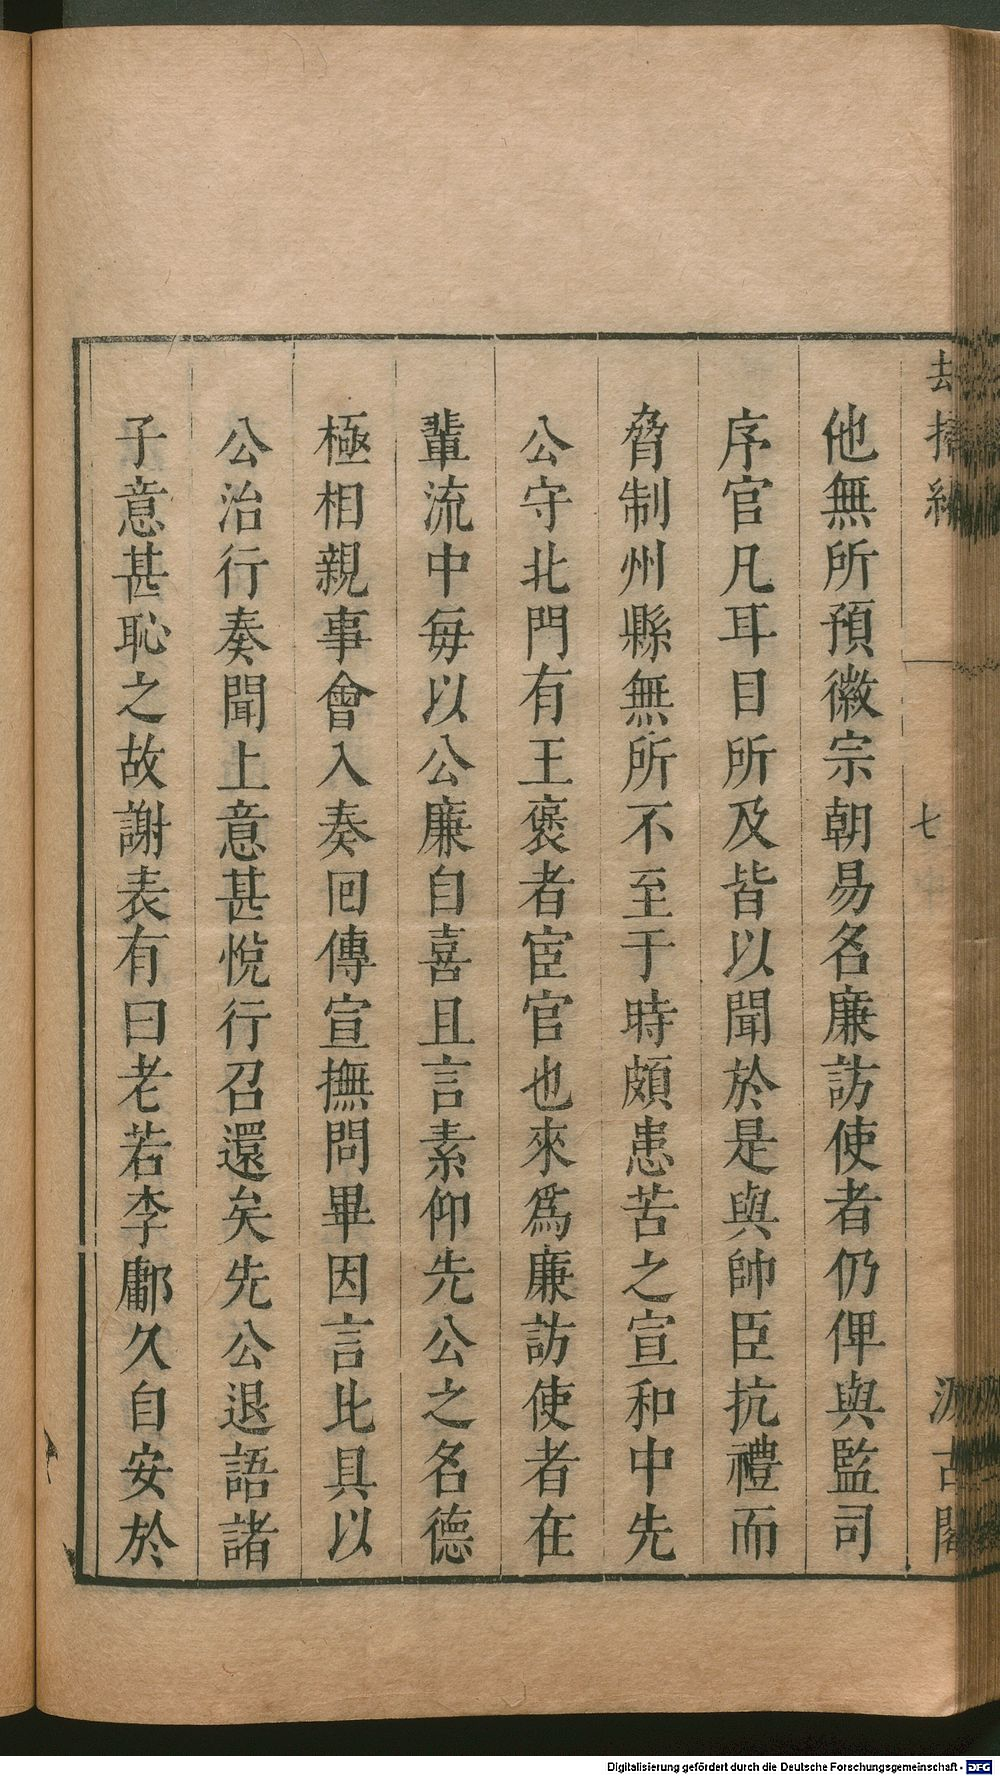 七
他無所預徽宗朝易名廉訪使者仍俾與監司
序官凡耳目所及皆以聞於是與帥臣抗禮而
脅制州縣無所不至于時頗患苦之宣和中先
公守北門有王褒者宦官也來爲廉訪使者在
輩流中每以公廉自喜且言素仰先公之名德
極相親事會入奏回傳宣撫問畢因言比具以
公治行奏聞上意甚悅行召還矣先公退語諸
子意甚恥之故謝表有曰老若李鄘久自安於
Digitalisierung gefördert durch die Deutsche Forschungsgemeinschaft - DFG